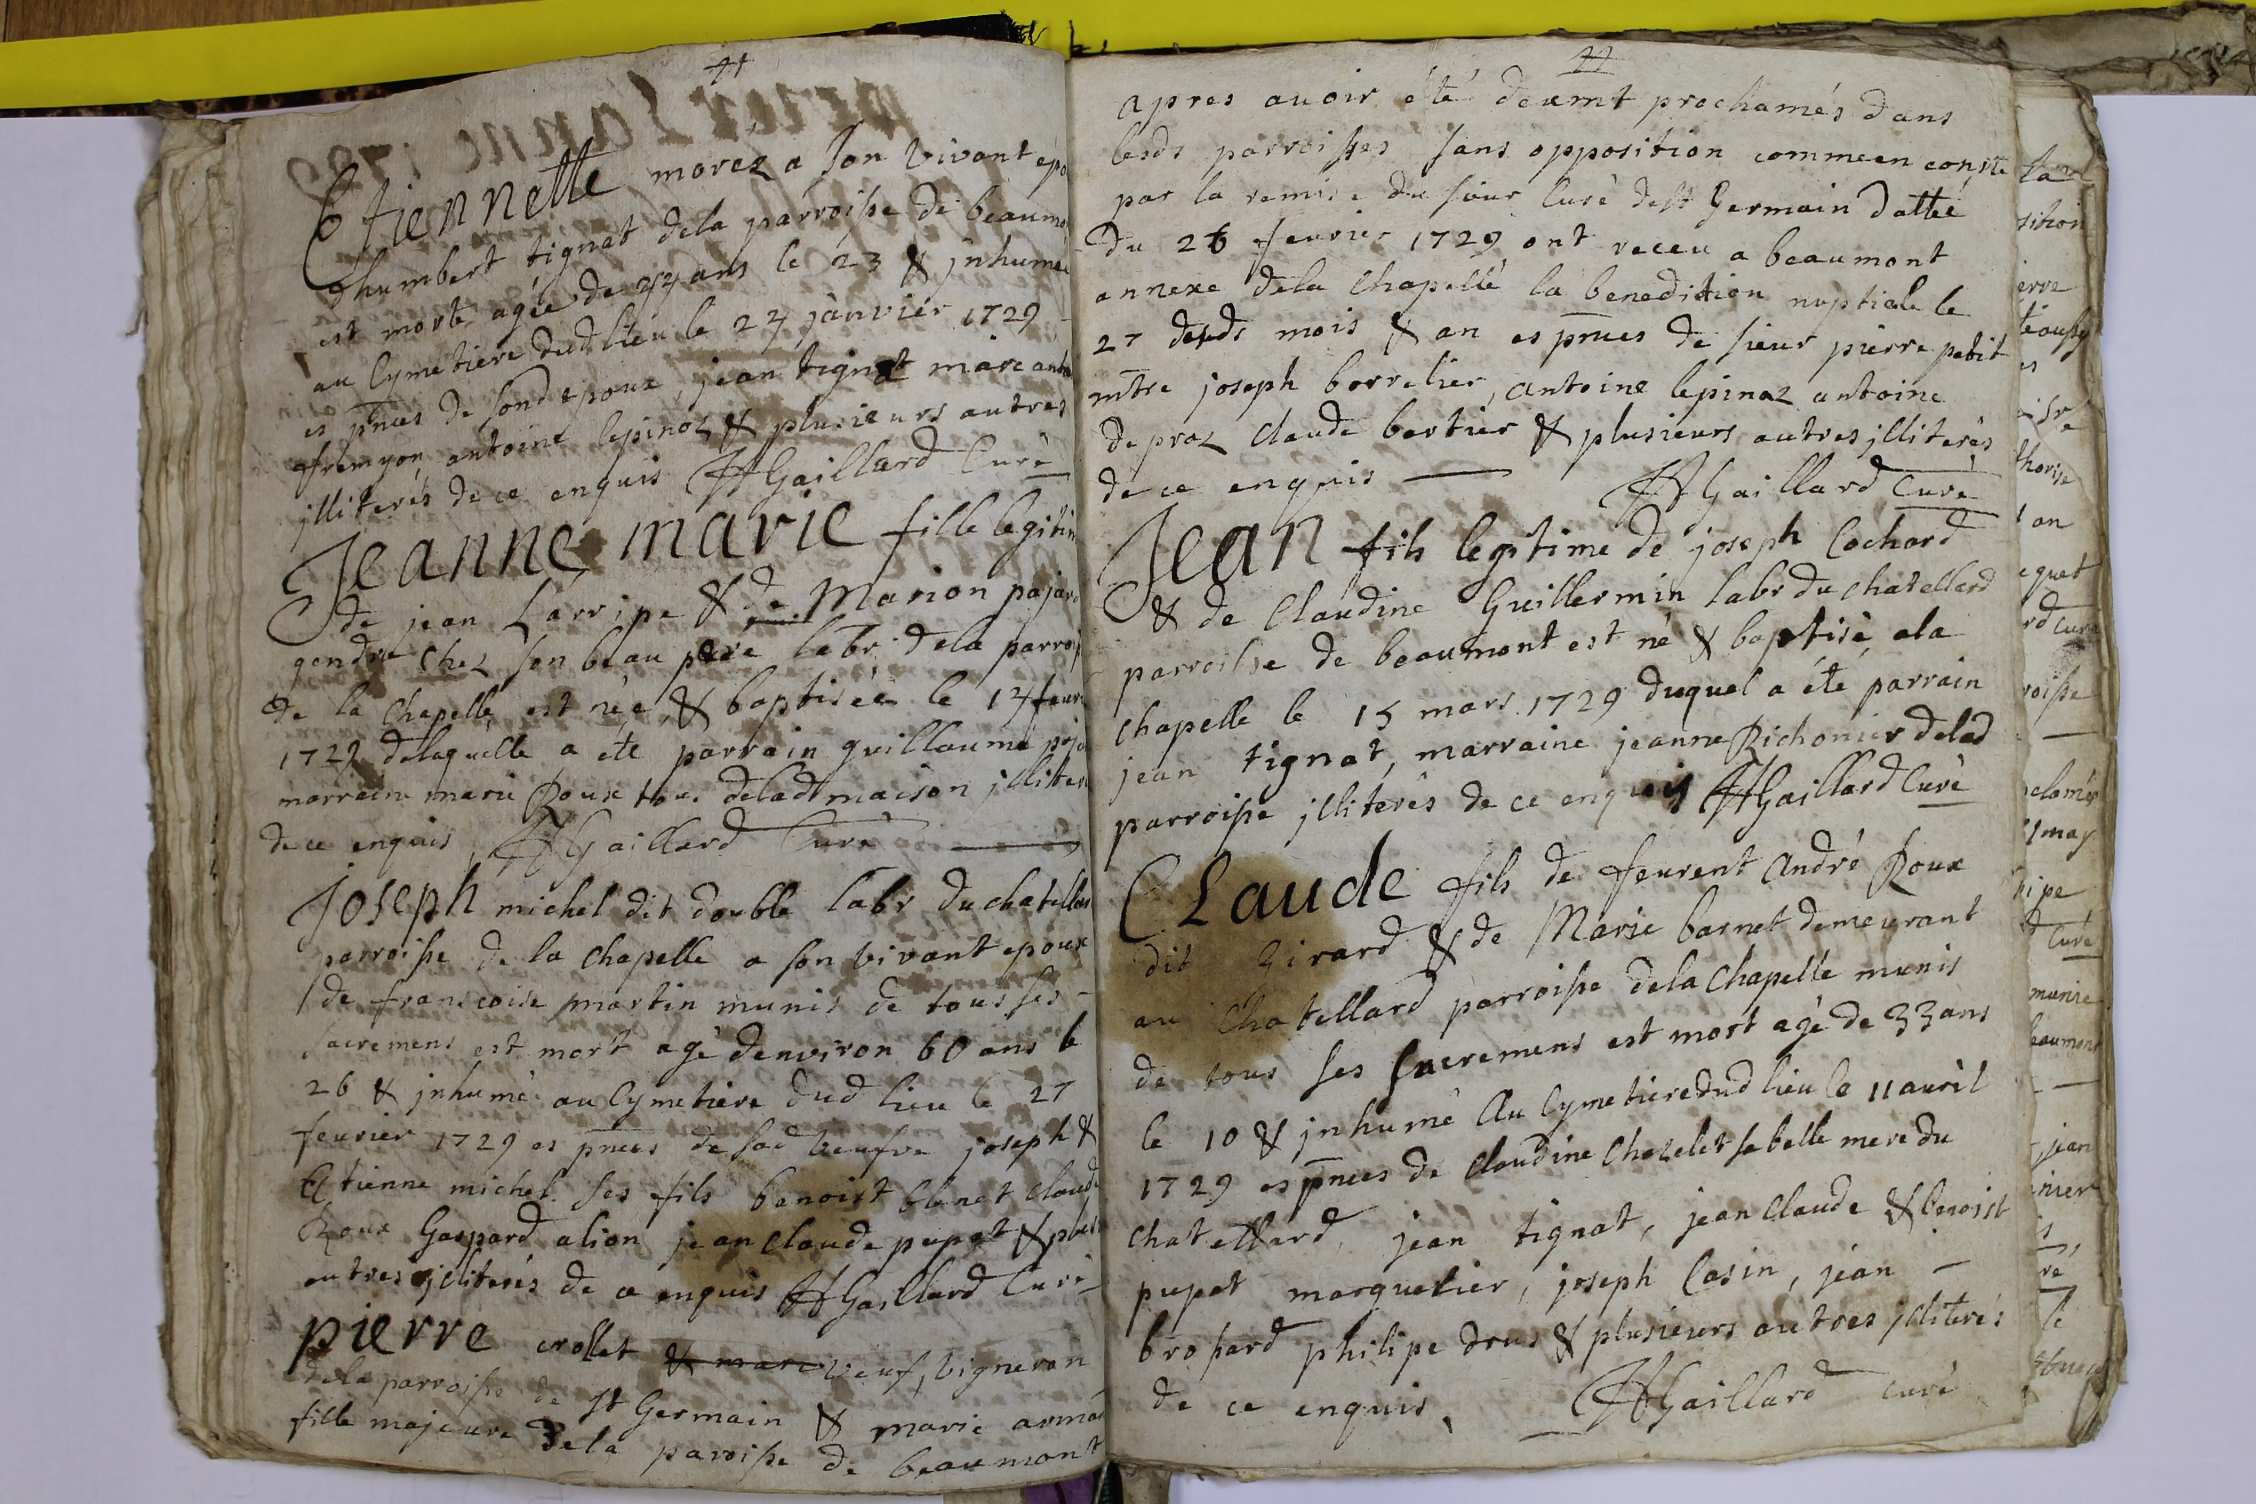 Etiennette morez a son vivant epo
dhumbert tignat dela parroisse de beaumo
est morte agée de 44 ans le 23 & jnhumée
au Cymetiere dud lieu le 24 janvier 1729
es pnces de sond epoux, jean tignat marc anto
fremyon antoine lepinoz & plusieurs autres
jlliterés de ce enquis Gaillard Curé
Jeanne marie fille legitim
de jean Larripe & de Marion pajard
gendre chez son beau pere labr dela parroiss
de la Chapelle est née & baptisée le 14 feuri
1729 delaquelle a eté parrain guillaume paja
marraine marie Roux tous delad maison jllitere
de ce enquis Gaillard Curé
Joseph michel dit double labr du chatellar
parroisse de la chapelle a son vivant epoux
de francoise martin munis de tous ses
sacremens est mort agé denviron 60 ans le
26 & jnhumé au Cymetiere dud lieu le 27
feurier 1729 es pnces de sad veufve joseph &
Etienne michel ses fils benoist blanct claude
Roux Gaspard alion jean claude pupat & plus
autres jlliterés de ce enquis Gaillard Curé
pierre crollet veuf, vigneron
dela parroisse de St Germain & marie
fille majeure dela paroisse de beaumont
apres auoir été deuemt proclamés dans
lesds parroisses sans opposition comme en conste
par la remise du sieur Curé de St Germain dattée
du 26 feurier 1729 ont receu a beaumont
annexe dela Chapelle la benedition nuptiale le
27 desds mois & an es pnces de sieur pierre petit
mtre joseph borrelier, antoine lepinaz antoine
depraz Claude bertier & plusieurs autres jlliterés
de ce enquis
Gaillard Curé
Jean fils legitime de joseph Cochard
& de Claudine Guillermin labr du chatellard
parroisse de beaumont est né & baptisé ala
chapelle le 15 mars 1729 duquel a été parrain
jean tignat, marraine jeanne Richonier delad
parroisse jlliterés de ce enquis Gaillard Curé
Claude fils de feurent André Roux
dit Girard & de Marie barnet demeurant
au Chatellard parroisse dela Chapelle munis
de tous ses sacremens est mort agé de 33 ans
le 10 & jnhumé Au Cymetiere dud lieu le 11 auril
1729 es pnces de Claudine Chazelet sa belle mere du
Chatellard, jean tignat, jean Claude & benoist
pupat marguelier, joseph Casin, jean
brossard philipe drus & plusieurs autres jlliterés
de ce enquis
Gaillard curé